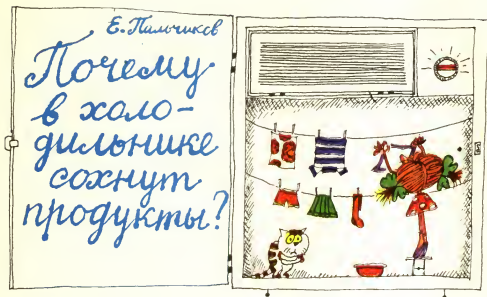 Е. Пильчиков
Почему
в холо-
дильнике
сохнут
продукты?